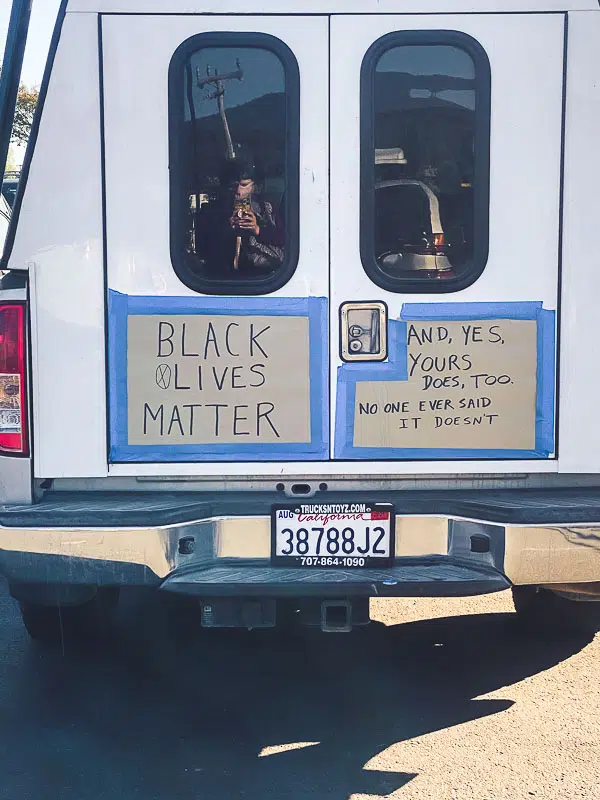 BLACK
LIVES
MATTER
AND, YES,
YOURS
DOES, TOO.
NO ONE EVER SAID
IT DOESN'T
TRUCKSNTOYZ.COM
AUG California
38788J2
707-864-1090